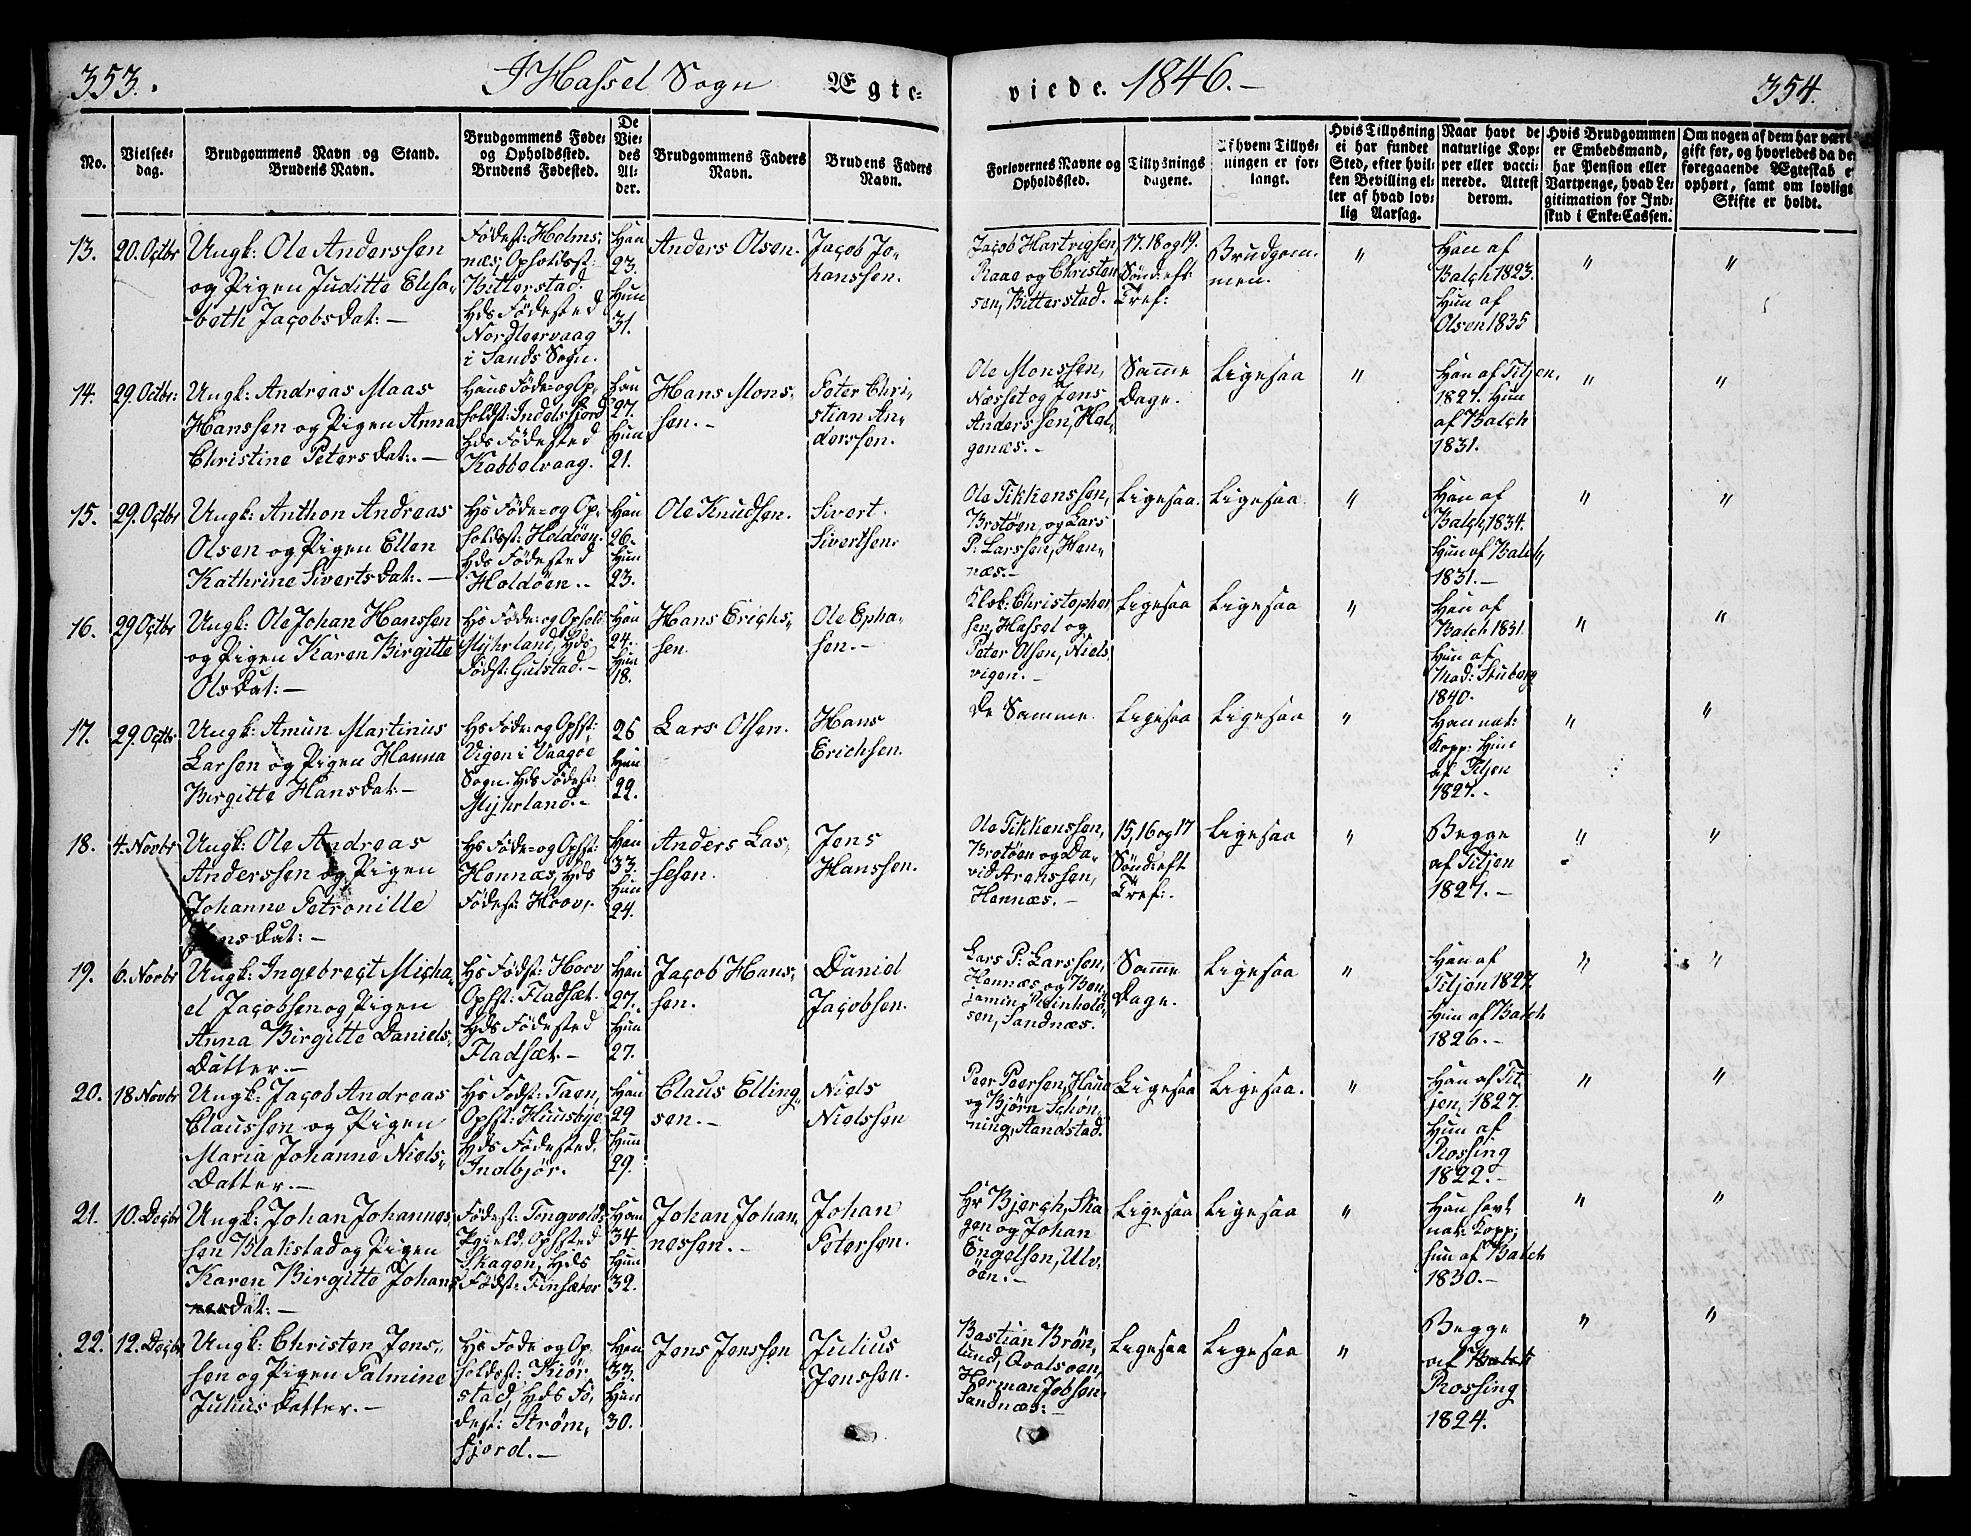 353.
I Hassel Sogn Ægte-
viede. 1846.-
354.
No.
Vielses-
dag.
Brudgommens Navn og Stand.
Brudens Navn.
Brudgommens Føde-
og Opholdssted.
Brudens Fødested.
De
Vie-
des
Al-
der.
Brudgommens Faders
Navn.
Brudens Faders
Navn.
Forlovernes Navne og
Opholdssted.
Tillysnings
dagene.
Af hvem Tillys-
ningen er for-
langt.
Hvis Tillysning
ei har fundet
Sted, efter hvil-
ken Bevilling el-
ler af hvad lov-
lig Aarsag.
Naar havt de
naturlige Kop-
per eller vacci-
nerede. Attest
derom.
Hvis Brudgommen
er Embedsmand,
har Pension eller
Vartpenge, hvad Le-
gitimation for Ind-
skud i Enke-Cassen.
Om nogen af dem har været
gift før, og hvorledes da det
foregaaende Ægteskab er
ophørt, samt om lovligt
Skifte er holdt.
13.
20. Octbr
Ungk: Ole Anderssen
og Pigen Juditte Elisa-
beth Jacobsdat:-
Fødest: Holms-
næs; Opholdsst:
Bitterstad.
Hds Fødested
Nordleervaag
i Sands Sogn.
Han
23.
Hun
31.
Anders Olsen.
Jacob Jo-
hanssen.
Jacob Hartvigsen
Raae og Christen
sen, Bitterstad.
17. 18 og 19.
Sønd: eft
Tref:
Brudgom-
men.
"
Han af
Balch 1823.
Hun af
Olsen 1835
"
"
14.
29. Octbr:
Ungk: Andreas Maas
Hanssen og Pigen Anna
Christine Petersdat:.-
Hans Føde= og Op-
holdst: Indelsfjord
Hds Fødested
Kabbelvaag.
Han
27.
Hun
21.
Hans Mons-
sen.-
Peter Chri-
stian An-
derssen.
Ole Monssen,
Næsset og Jens
Anderssen, Hol-
genæs.-
Samme
Dage.
Ligesaa
"
Han af Tiljen,
1827. Hun
af Balch
1831.
"
"
15.
29. Octbr
Ungk: Anthon Andreas
Olsen og Pigen Ellen
Kathrine Sivertsdat:.-
Hs Føde= og Op-
holdest: Holdøen.
Hds Fødested
Holdøen.-
Han
26.
Hun
23.
Ole Knudsen.
Sivert
Sivertsen.
Ole Tikkenssen,
Brotøen, og Lars
P: Larssen, Hen-
næs.-
Ligesaa.
Ligesaa
"
Han af
Balch 1834.
Hun af Balch,
1831.-
"
"
16.
29 Octbr
Ungk: Ole Johan Hanssen
og Pigen Karen Birgitte
Olsdat:-
Hs Føde= og Ophold
Myhrland, Hds
Fødst: Gulstad.-
Han
24.
Hun
18.
Hans Erichs-
sen.
Ole Epha-
sen.-
Klok: Christopher
sen, Hassel og
Peter Olsen, Niels-
vigen.-
Ligesaa
Ligesaa
"
Han af
Balch 1831
Hun af
Mad: Stuberg
1840.
"
"
17.
29. Octbr
Ungk: Amun Martinius
Larsen og Pigen Hanna
Birgitte Hansdat:-
Hs Føde= og Ophst:
Vigen i Vaagøe
Sogn. Hds Fødest:
Myhrland.-
26
Hun
22.
Lars Olsen.
Hans
Erichsen.
De Samme.
Ligesaa
Ligesaa
"
Han nat:
Kopp: Hun
af Tiljen
1827.-
"
"
18.
4. Novbr
Ungk: Ole Andreas
Anderssen og Pigen
Johanne Petronille
Hansdat:-
Hs Føde= og Ophst:
Hennæs, Hds
Fødest: Hoov.
Han
33.
Hun
24.
Anders Las-
sesen.
Jens
Hanssen.
Ole Tikkenssen,
Brotøen og Da-
vid Arenssen,
Hennæs.-
15, 16 og 17
Sønd: eft
Tref:.
Ligesaa
"
Begge
af Tiljen
1827.-
"
"
19.
6. Novbr
Ungk: Ingebregt Micha-
el Jacobsen og Pigen
Anna Birgitte Daniels-
Datter.-
Hs Fødst: Hoov
Ophst: Fladsæt.
Hds Fødested
Fladsæt.-
Han
27.
Hun
27.
Jacob Hans-
sen.
Daniel
Jacobsen.
Lars P: Larssen,
Hennæs og Ben-
jamin Reinhold-
sen, Sandnæs.
Samme
Dage.
Ligesaa
"
Han af
Tiljen 1827.
Hun af Balch
1826.-
"
"
20.
18 Novbr
Ungk: Jacob Andreas
Claussen og Pigen
Maria Johanne Niels-
Datter.-
Hs Fødst: Taen,
Ophst: Huusbye,
Hds Fødested,
Indbjør.
Han
29
Hun
29.
Claus Elling-
sen.-
Niels
Nielssen
Peer Peersen, Haug
og Bjørn Schøn-
ning, Aandstad.
Ligesaa
Ligesaa.
"
Han af Til-
jen, 1827.
Hun af
Rossing
1822.-
"
"
21.
10. Decbr
Ungk: Johan Johannes-
sen Blakstad og Pigen
Karen Birgitte Johan-
nesdat:-
Fødest: Tingvolds
Pgield, Ophsted
Skagen, Hds
Fødst: Finsæter
Han
34
Hun
32.
Johan Johan-
nessen.-
Johan
Petersen.
Hr Bjergh, Ska-
gen og Johan
Engelsen, Ulv-
øen.-
Ligesaa
Ligesaa
"
Han havt
nat: Kopp;
hun af Balch
1830.-
"
"
22.
12. Decbr
Ungk: Christen Jens-
sen og Pigen Palmine
Juliusdatter.-
Hs Føde og Op-
holdst: Kiør-
stad, Hds Fø-
dest: Strøm-
fjord.-
Han
33.
Hun
30.
Jens Jenssen
Julius
Jenssen.
Bastian Brøn-
lund, Qvalsøen,
Herman Jobsen,
Sandnæs:-
Ligesaa
Ligesaa
"
Begge
af Balch
Rossing
1824.
"
"